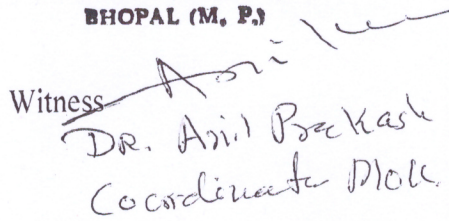 BHOPAL (M. P.)
Witness
DR. Anil Prakash
Coordinator